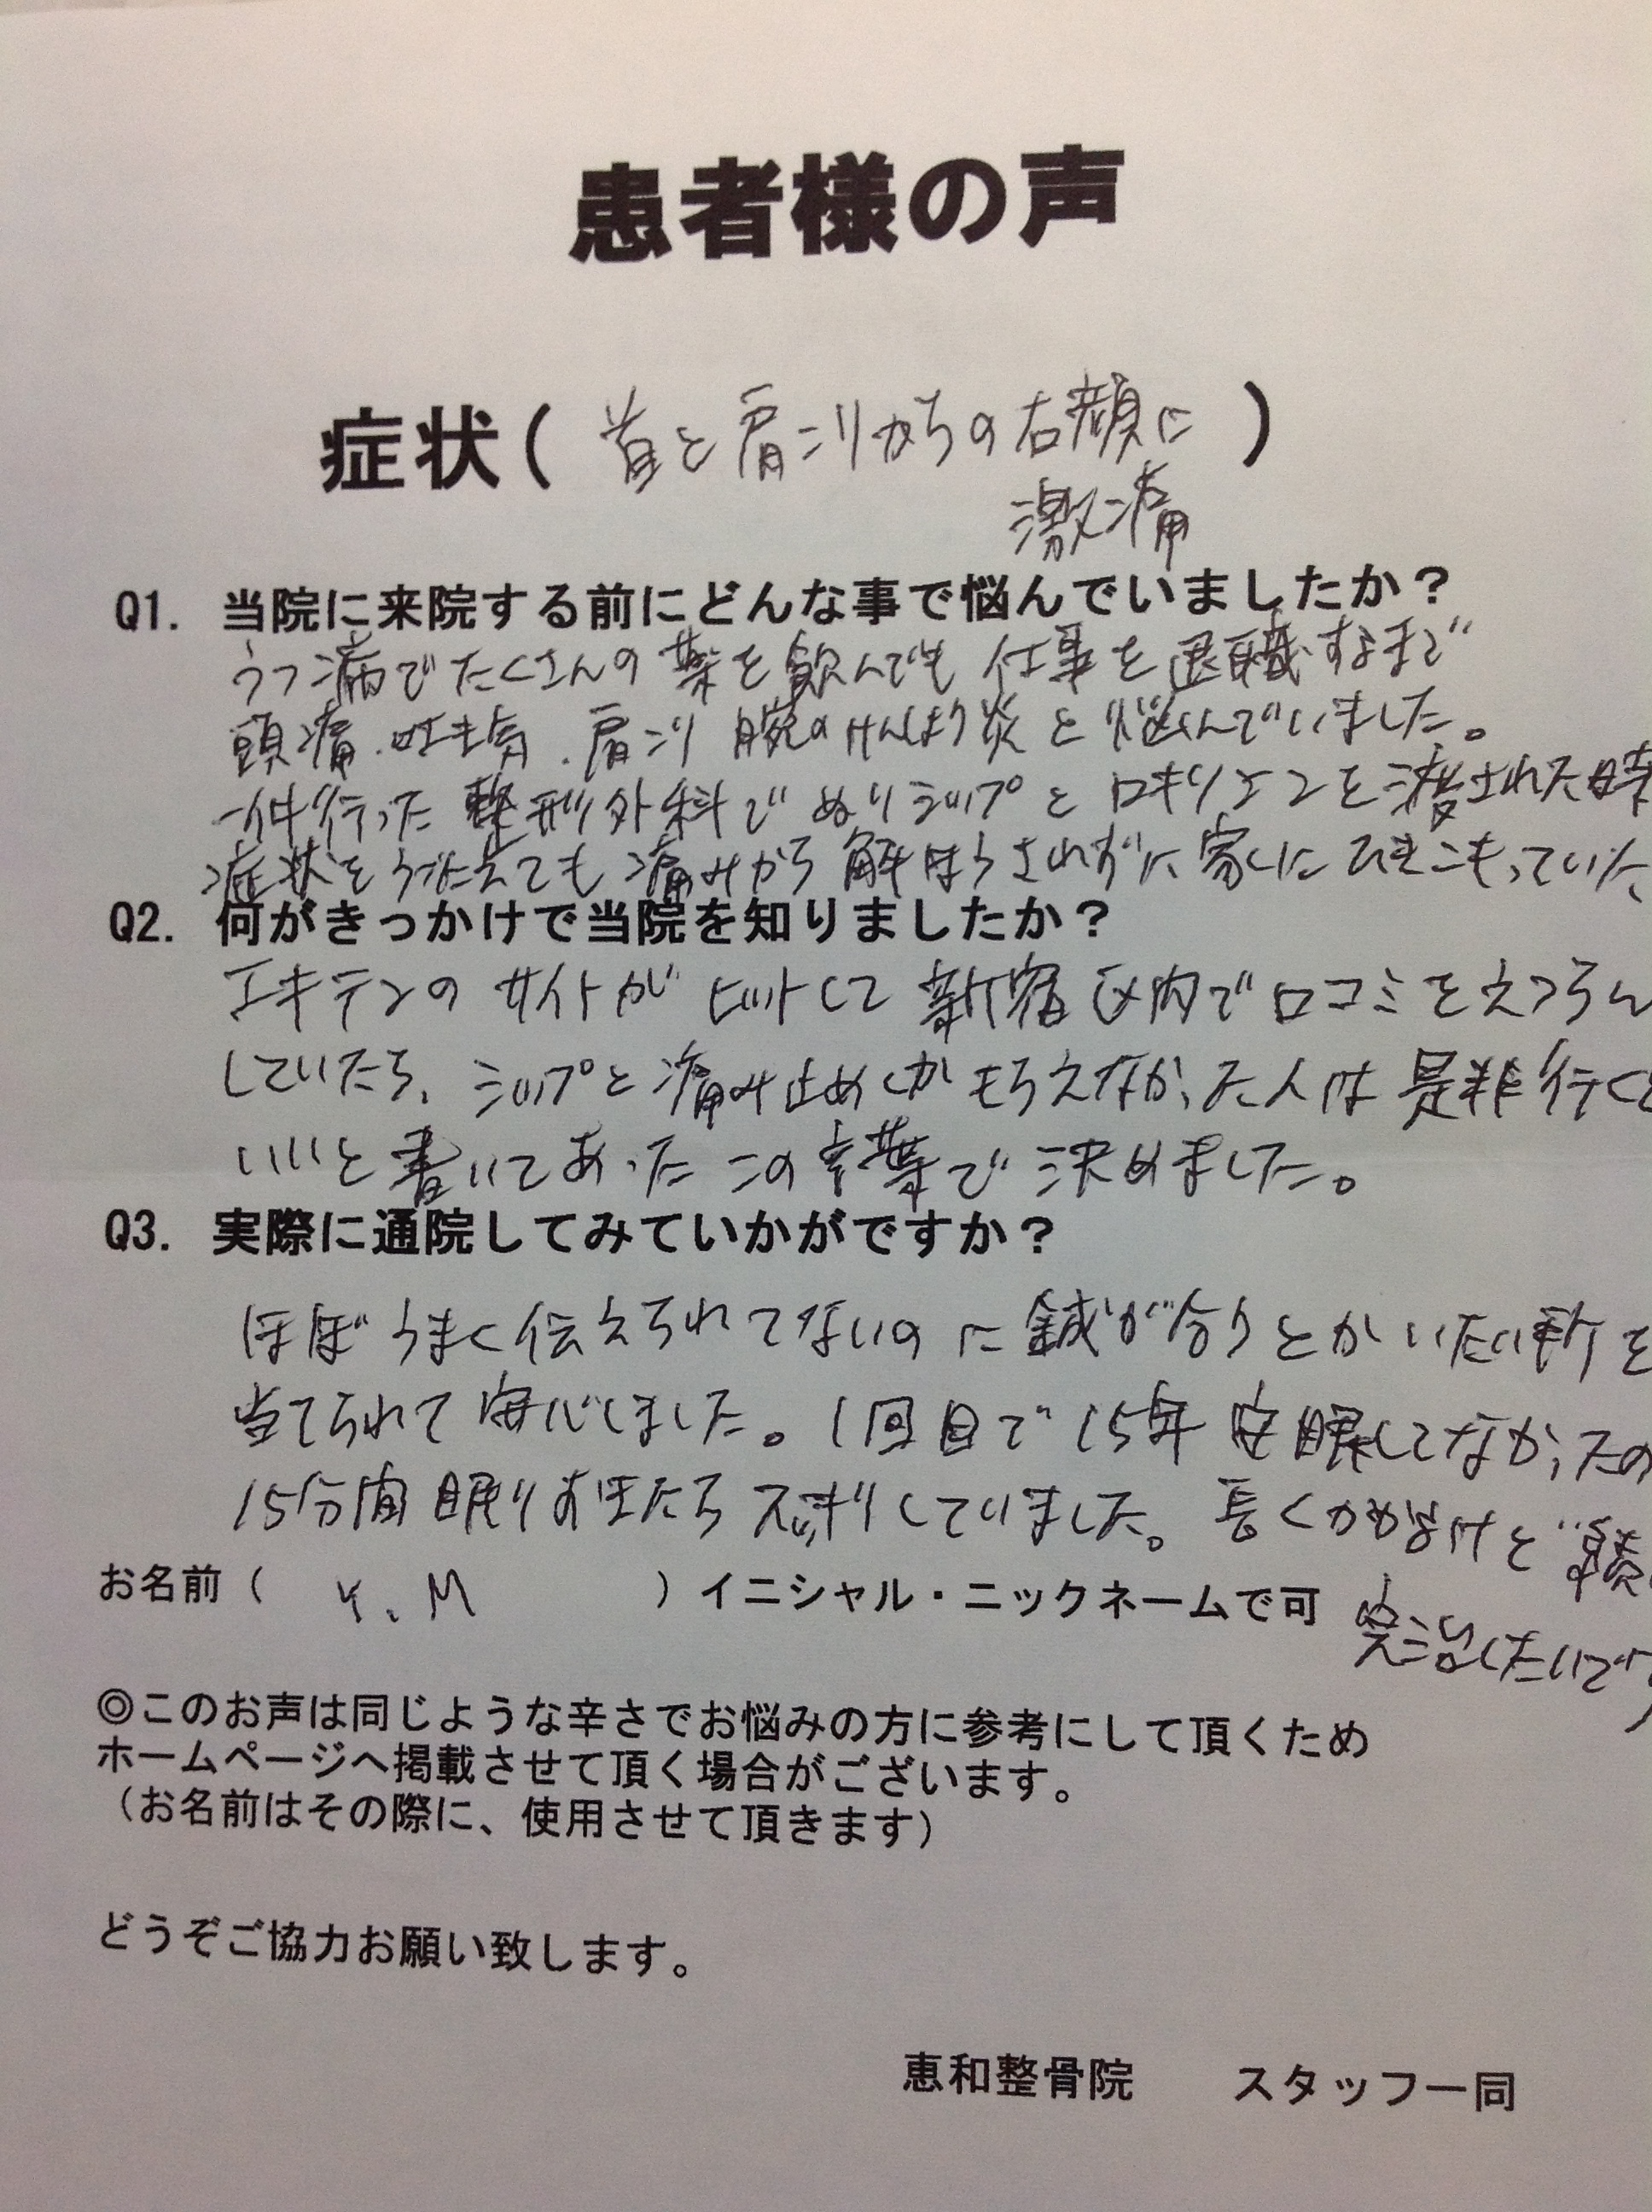 患者様の声
症状( 首と肩こりからの右顔に )
激痛
Q1. 当院に来院する前にどんな事で悩んでいましたか？
うつ病でたくさんの薬を飲んでも 仕事を退職するまで
頭痛.吐き気.肩こり 腕のけんしょう炎と悩んでいました。
一件行った整形外科で ぬりシップとロキソニンを渡された時
症状をうったえても 痛みから解ほうされずに家にひきこもっていた、
Q2. 何がきっかけで当院を知りましたか？
エキテンのサイトがヒットして新宿区内で口コミをえつらん
していたら、シップと痛み止めしかもらえなかった人は是非行くと
いいと書いてあったこの言葉で決めました。
Q3. 実際に通院してみていかがですか？
ほぼうまく伝えられてないのに鍼が合うとかいたい所を
当てられて安心しました。1回目で15年安眠してなかったの
15分間眠りおきたらスッキリしていました。長くかかるけど
お名前( Y.M )イニシャル・ニックネームで可
完治したいです
◎このお声は同じような辛さでお悩みの方に参考にして頂くため
ホームページへ掲載させて頂く場合がございます。
（お名前はその際に、使用させて頂きます）
どうぞご協力お願い致します。
恵和整骨院 スタッフ一同